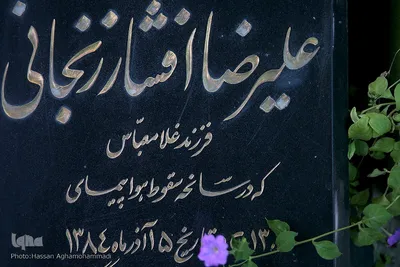 علیرضا افشار زنجانی
فرزند غلامعباس
که در سانحه سقوط هواپیمای
۱۳۰ در تاریخ ۱۵ آذر ماه ۱۳۸۴
iqna
Photo:Hassan Aghamohammadi